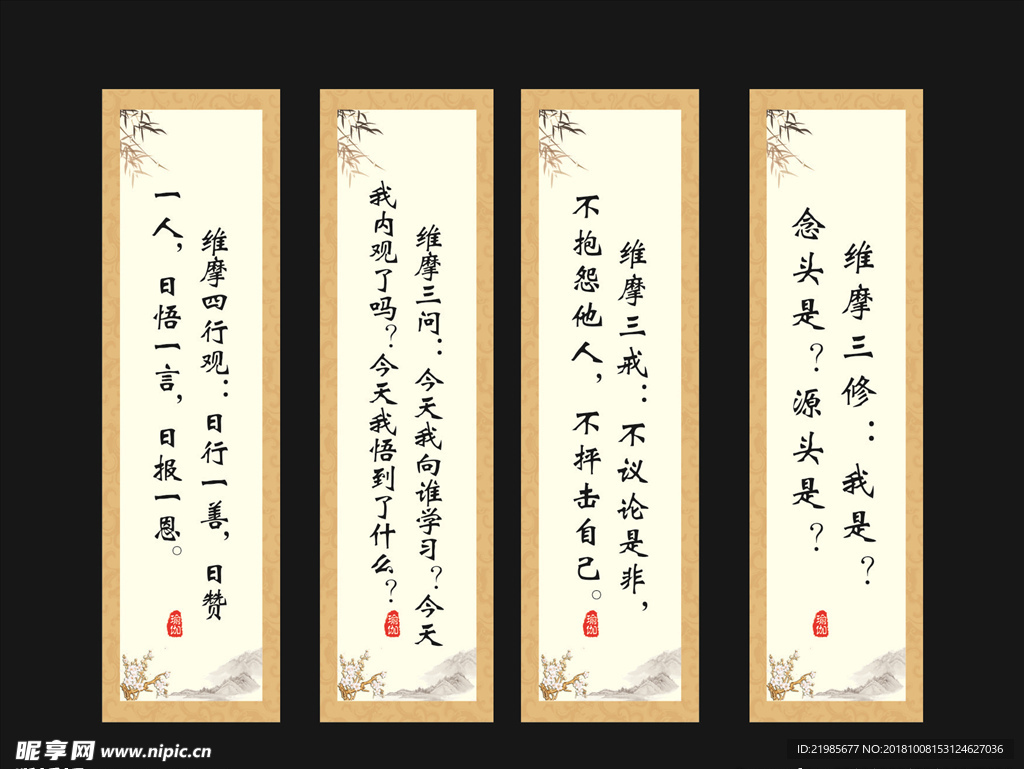 维摩四行观：日行一善，日赞
一人，日悟一言，日报一恩。
瑜伽
维摩三问：今天我向谁学习？今天
我内观了吗？今天我悟到了什么？
瑜伽
维摩三戒：不议论是非，
不抱怨他人，不抨击自己。
瑜伽
维摩三修：我是？
念头是？源头是？
瑜伽
昵享网 www.nipic.cn
ID:21985677 NO:20181008153124627036